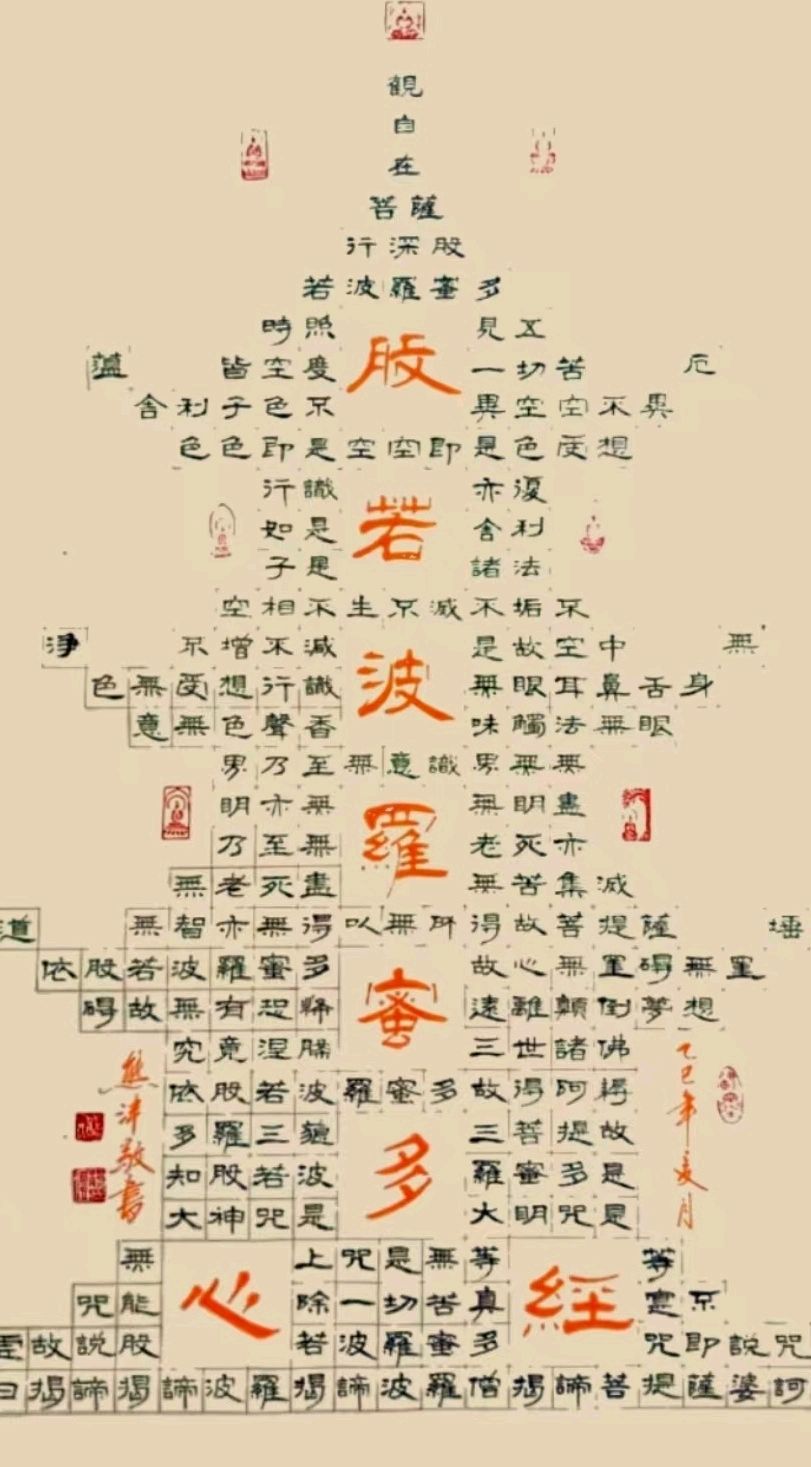 觀
自
在
菩薩
行深般
若波羅蜜多
時照 見五
蘊 皆空度 一切苦 厄
舍利子色不 異空空不異
色色即是空空即是色受想
行識 亦復
如是 舍利
子是 諸法
空相不生不滅不垢不
淨 不增不減 是故空中 無
色無受想行識 無眼耳鼻舌身
意無色聲香 味觸法無眼
界乃至無意識界無無
明亦無 無明盡
乃至無 老死亦
無老死盡 無苦集滅
道 無智亦無得以無所得故菩提薩 埵
依般若波羅蜜多 故心無罣礙無罣
礙故無有恐怖 遠離顛倒夢想
究竟涅槃 三世諸佛
依般若波羅蜜多故得阿耨
多羅三藐 三菩提故
知般若波 羅蜜多是
大神咒是 大明咒是
無 上咒是無等 等
咒能 除一切苦真 實不
虛故說般 若波羅蜜多 咒即說咒
曰揭諦揭諦波羅揭諦波羅僧揭諦菩提薩婆訶
般若波羅蜜多心經
乙巳年亥月
熊 敬書